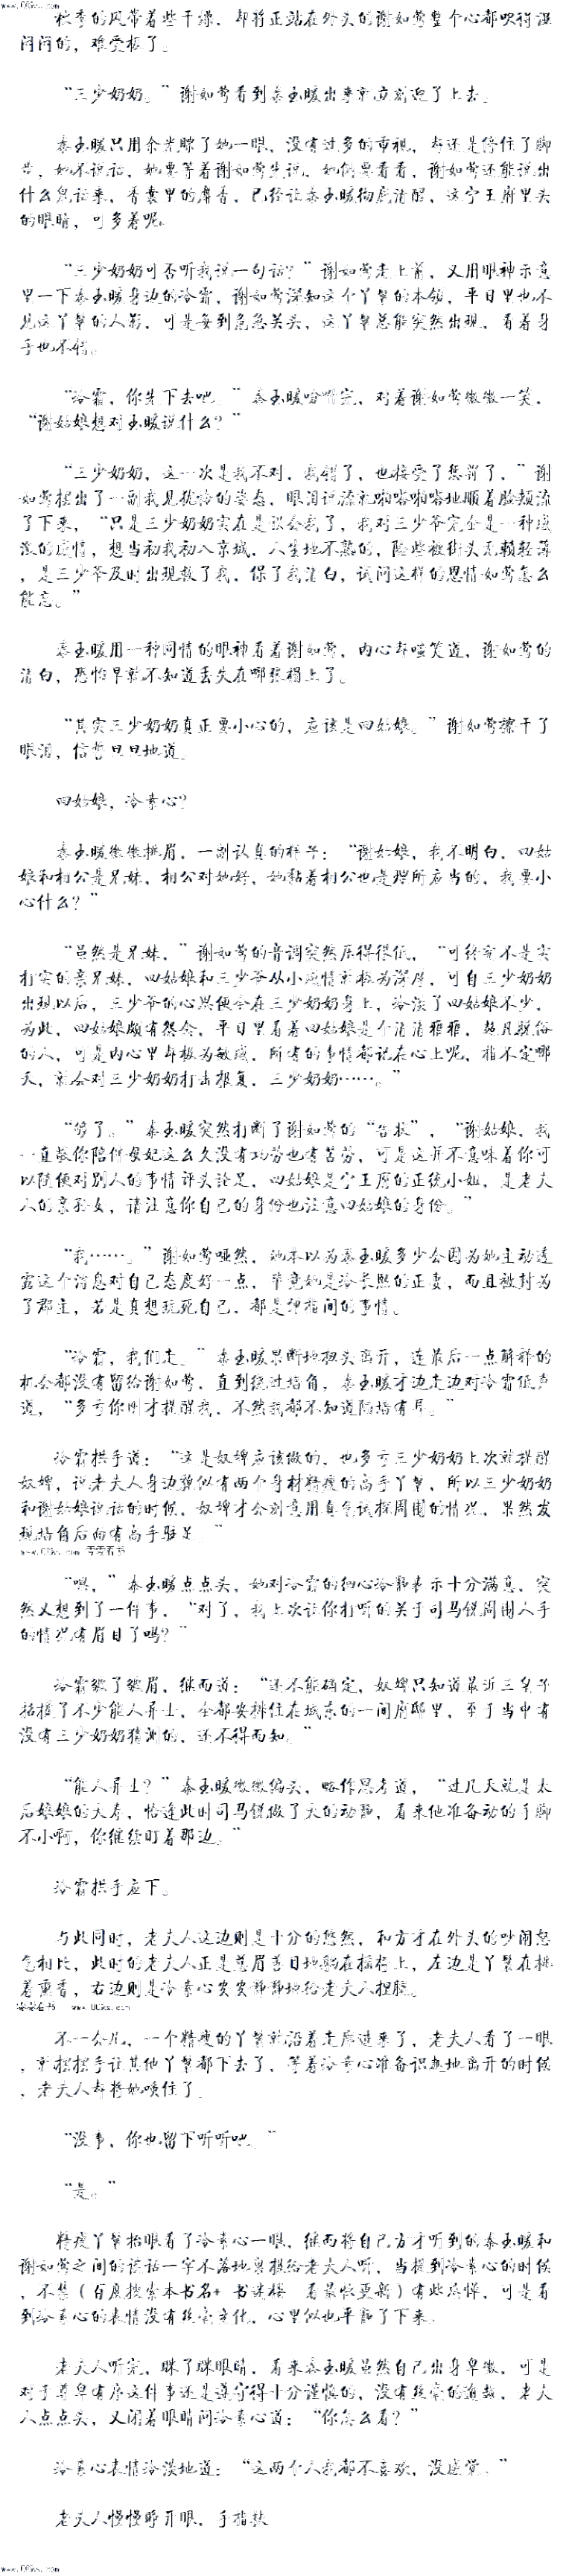 www.00ks.com
秋季的风带着些干燥，却将正站在外头的谢如莺整个心都吹得沉
闷闷的，难受极了。
“三少奶奶。”谢如莺看到秦玉暖出来就立刻迎了上去。
秦玉暖只用余光睬了她一眼，没有过多的重视，却还是停住了脚
步，她不说话，她要等着谢如莺先说，她倒要看看，谢如莺还能说出
什么鬼话来，香囊里的麝香，已经让秦玉暖彻底清醒，这宁王府里头
的眼睛，可多着呢。
“三少奶奶可否听我说一句话？”谢如莺走上前，又用眼神示意
里一下秦玉暖身边的冷霜，谢如莺深知这个丫鬟的本领，平日里也不
见这丫鬟的人影，可是每到危急关头，这丫鬟总能突然出现，看着身
手也不错。
“冷霜，你先下去吧。”秦玉暖吩咐完，对着谢如莺微微一笑，
“谢姑娘想对玉暖说什么？”
“三少奶奶，这一次是我不对，我错了，也接受了惩罚了，”谢
如莺摆出了一副我见犹怜的姿态，眼泪说流就啪嗒啪嗒地顺着脸颊流
了下来，“只是三少奶奶实在是误会我了，我对三少爷完全是一种感
激的感情，想当初我初入京城，人生地不熟的，险些被街头无赖轻薄
，是三少爷及时出现救了我，保了我清白，试问这样的恩情如莺怎么
能忘。”
秦玉暖用一种同情的眼神看着谢如莺，内心却嗤笑道，谢如莺的
清白，恐怕早就不知道丢失在哪张榻上了。
“其实三少奶奶真正要小心的，应该是四姑娘。”谢如莺擦干了
眼泪，信誓旦旦地道。
四姑娘，冷素心？
秦玉暖微微挑眉，一副认真的样子：“谢姑娘，我不明白，四姑
娘和相公是兄妹，相公对她好，她黏着相公也是理所应当的，我要小
心什么？”
“虽然是兄妹，”谢如莺的音调突然压得很低，“可终究不是实
打实的亲兄妹，四姑娘和三少爷从小感情就极为深厚，可自三少奶奶
出现以后，三少爷的心思便全在三少奶奶身上，冷淡了四姑娘不少，
为此，四姑娘颇有怨念，平日里看着四姑娘是个清清雅雅，超凡脱俗
的人，可是内心里却极为敏感，所有的事情都记在心上呢，指不定哪
天，就会对三少奶奶打击报复，三少奶奶……。”
“够了。”秦玉暖突然打断了谢如莺的“告状”，“谢姑娘，我
一直敬你陪伴母妃这么久没有功劳也有苦劳，可是这并不意味着你可
以随便对别人的事情评头论足，四姑娘是宁王府的正统小姐，是老夫
人的亲孙女，请注意你自己的身份也注意四姑娘的身份。”
“我……。”谢如莺哑然，她本以为秦玉暖多少会因为她主动透
露这个消息对自己态度好一点，毕竟她是冷长熙的正妻，而且被封为
了郡主，若是真想玩死自己，都是弹指间的事情。
“冷霜，我们走。”秦玉暖果断地扭头离开，连最后一点解释的
机会都没有留给谢如莺，直到绕过墙角，秦玉暖才边走边对冷霜低声
道，“多亏你刚才提醒我，不然我都不知道隔墙有耳。”
冷霜拱手道：“这是奴婢应该做的，也多亏三少奶奶上次就提醒
奴婢，说老夫人身边貌似有两个身材精瘦的高手丫鬟，所以三少奶奶
和谢姑娘说话的时候，奴婢才会刻意用真气试探周围的情况，果然发
现墙角后面有高手驻足。”
www.00ks.com 零零看书
“嗯，”秦玉暖点点头，她对冷霜的细心冷静表示十分满意，突
然又想到了一件事，“对了，我上次让你打听的关于司马锐周围人手
的情况有眉目了吗？”
冷霜皱了皱眉，继而道：“还不能确定，奴婢只知道最近三皇子
招揽了不少能人异士，全都安排住在城东的一间府邸里，至于当中有
没有三少奶奶猜测的，还不得而知。”
“能人异士？”秦玉暖微微偏头，略作思考道，“过几天就是太
后娘娘的大寿，恰逢此时司马锐做了大的动静，看来他准备动的手脚
不小啊，你继续盯着那边。”
冷霜拱手应下。
与此同时，老夫人这边则是十分的悠然，和方才在外头的吵闹怒
气相比，此时的老夫人正是慈眉善目地躺在摇椅上，左边是丫鬟在挑
着熏香，右边则是冷素心安安静静地给老夫人捏腿。
零零看书 www.00ks.com
不一会儿，一个精瘦的丫鬟就沿着走廊进来了，老夫人看了一眼
，就摆摆手让其他丫鬟都下去了，等着冷素心准备识趣地离开的时候
，老夫人却将她唤住了。
“没事，你也留下听听吧。”
“是。”
精瘦丫鬟抬眼看了冷素心一眼，继而将自己方才听到的秦玉暖和
谢如莺之间的谈话一字不落地禀报给老夫人听，当提到冷素心的时候
，不禁（百度搜索本书名+ 书迷楼 看最快更新）有些忌惮，可是看
到冷素心的表情没有丝毫变化，心里似也平静了下来。
老夫人听完，眯了眯眼睛，看来秦玉暖虽然自己出身卑微，可是
对于尊卑有序这件事还是遵守得十分谨慎的，没有丝毫的逾越，老夫
人点点头，又闭着眼睛问冷素心道：“你怎么看？”
冷素心表情冷淡地道：“这两个人我都不喜欢，没感觉。”
老夫人慢慢睁开眼，手指扶
www.00ks.com